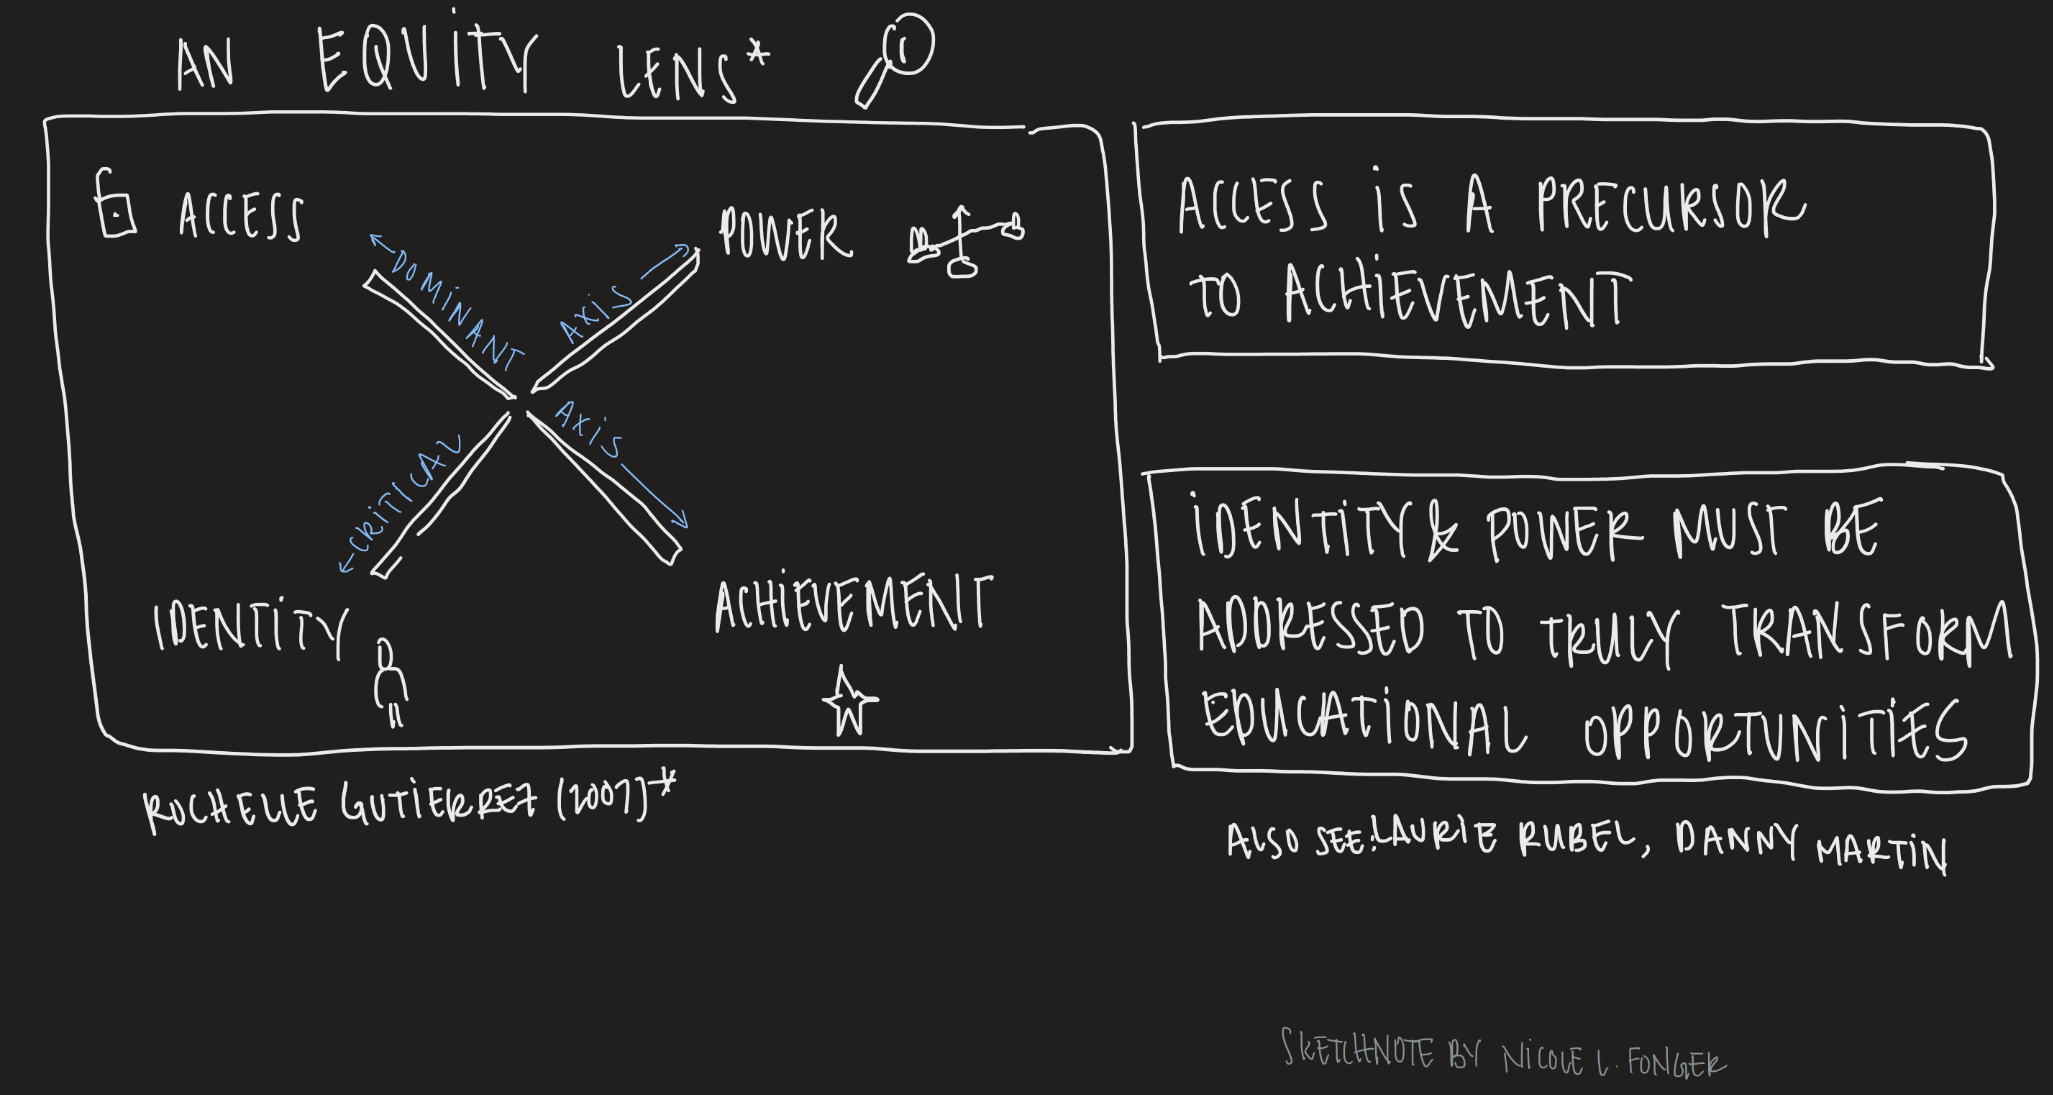 AN EQUITY LENS*
ACCESS
POWER
← DOMINANT
AXIS →
← CRITICAL
AXIS →
IDENTITY
ACHIEVEMENT
ROCHELLE GUTIERREZ (2007)*
ACCESS IS A PRECURSOR
TO ACHIEVEMENT
IDENTITY & POWER MUST BE
ADDRESSED TO TRULY TRANSFORM
EDUCATIONAL OPPORTUNITIES
ALSO SEE: LAURIE RUBEL, DANNY MARTIN
SKETCHNOTE BY NICOLE L. FONGER